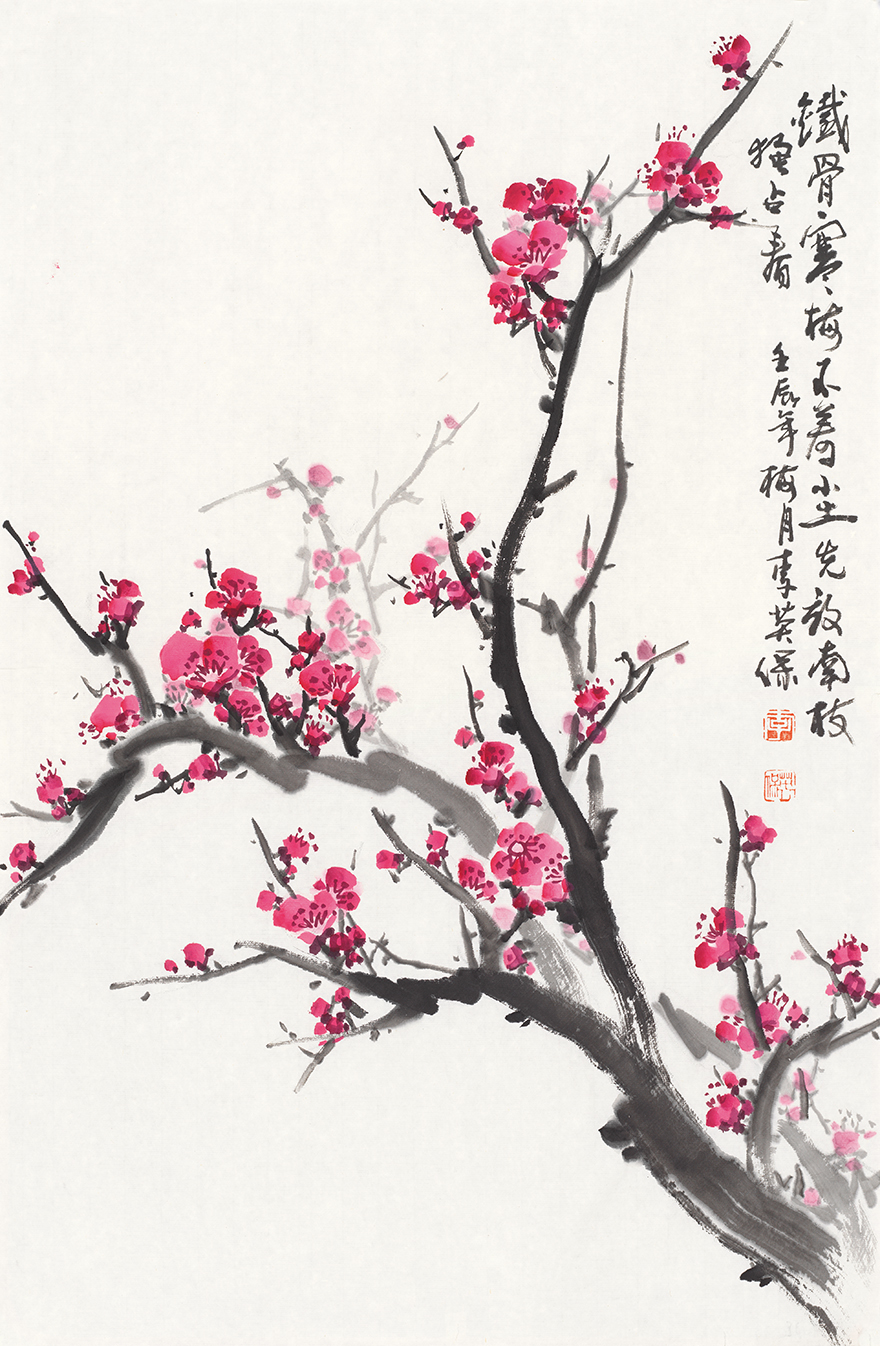 鐵骨寒梅不着尘先放南枝
独占春 壬辰年梅月李英保